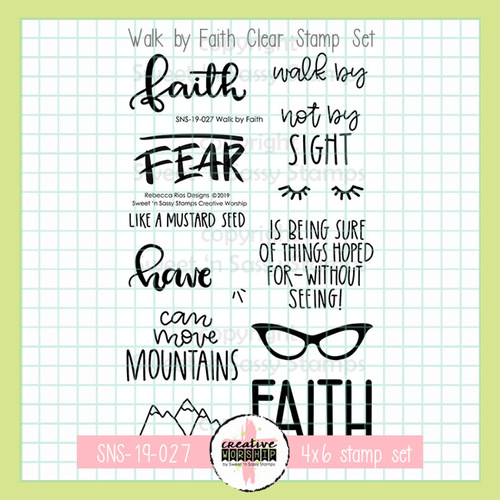 Walk by Faith Clear Stamp Set
faith
SNS-19-027 Walk by Faith
FEAR
Rebecca Rios Designs ©2019
Sweet 'n Sassy Stamps Creative Worship
LIKE A MUSTARD SEED
have
can
move
MOUNTAINS
walk by
not by
SIGHT
IS BEING SURE
OF THINGS HOPED
FOR-WITHOUT
SEEING!
FAITH
copyright
Sweet 'n Sassy Stamps
copyright
Sweet 'n Sassy Stamps
copyright
Sweet 'n Sassy Stamps
copyright
Sweet 'n Sassy Stamps
SNS-19-027
creative
WORSHIP
by Sweet 'n Sassy Stamps
4x6 stamp set